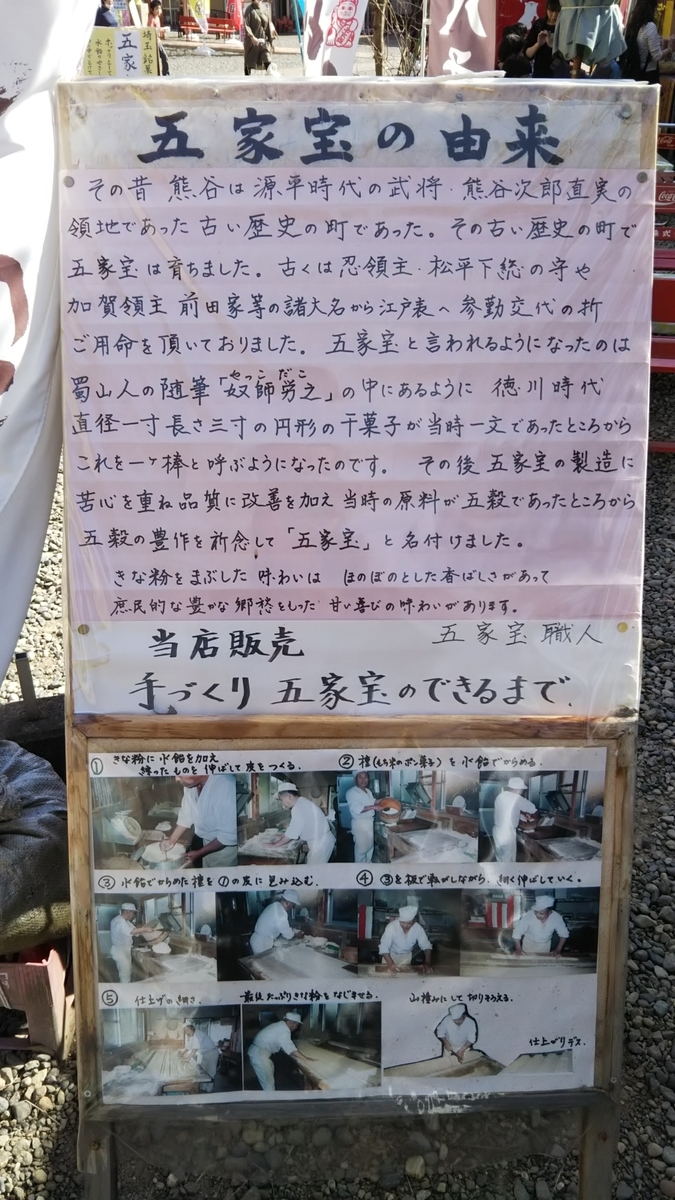 埼玉銘菓
五家
五家宝の由来
その昔 熊谷は源平時代の武将・熊谷次郎直実の
領地であった古い歴史の町であった。その古い歴史の町で
五家宝は育ちました。古くは忍領主・松平下総の守や
加賀領主 前田家等の諸大名から江戸表へ参勤交代の折
ご用命を頂いておりました。五家宝と言われるようになったのは
やっこ だこ
蜀山人の随筆「奴師労之」の中にあるように 徳川時代
直径一寸長さ三寸の円形の干菓子が当時一文であったところから
これを一ヶ棒と呼ぶようになったのです。 その後 五家宝の製造に
苦心を重ね品質に改善を加え当時の原料が五穀であったところから
五穀の豊作を祈念して「五家宝」と名付けました。
きな粉をまぶした味わいは ほのぼのとした香ばしさがあって
庶民的な豊かな郷愁をもった甘い喜びの味わいがあります。
五家宝職人
当店販売
手づくり五家宝のできるまで.
① きな粉に水飴を加え
練ったものを伸ばして皮をつくる.
② 種(もち米のポン菓子)を水飴でからめる.
③ 水飴でからめた種を①の皮に包み込む.
④ ③を板で転がしながら、細く伸ばしていく。
⑤ 仕上げの細さ.
最後たっぷりきな粉をなじませる.
山積みにして切りそろえる.
仕上がりデス.
Coca-Cola